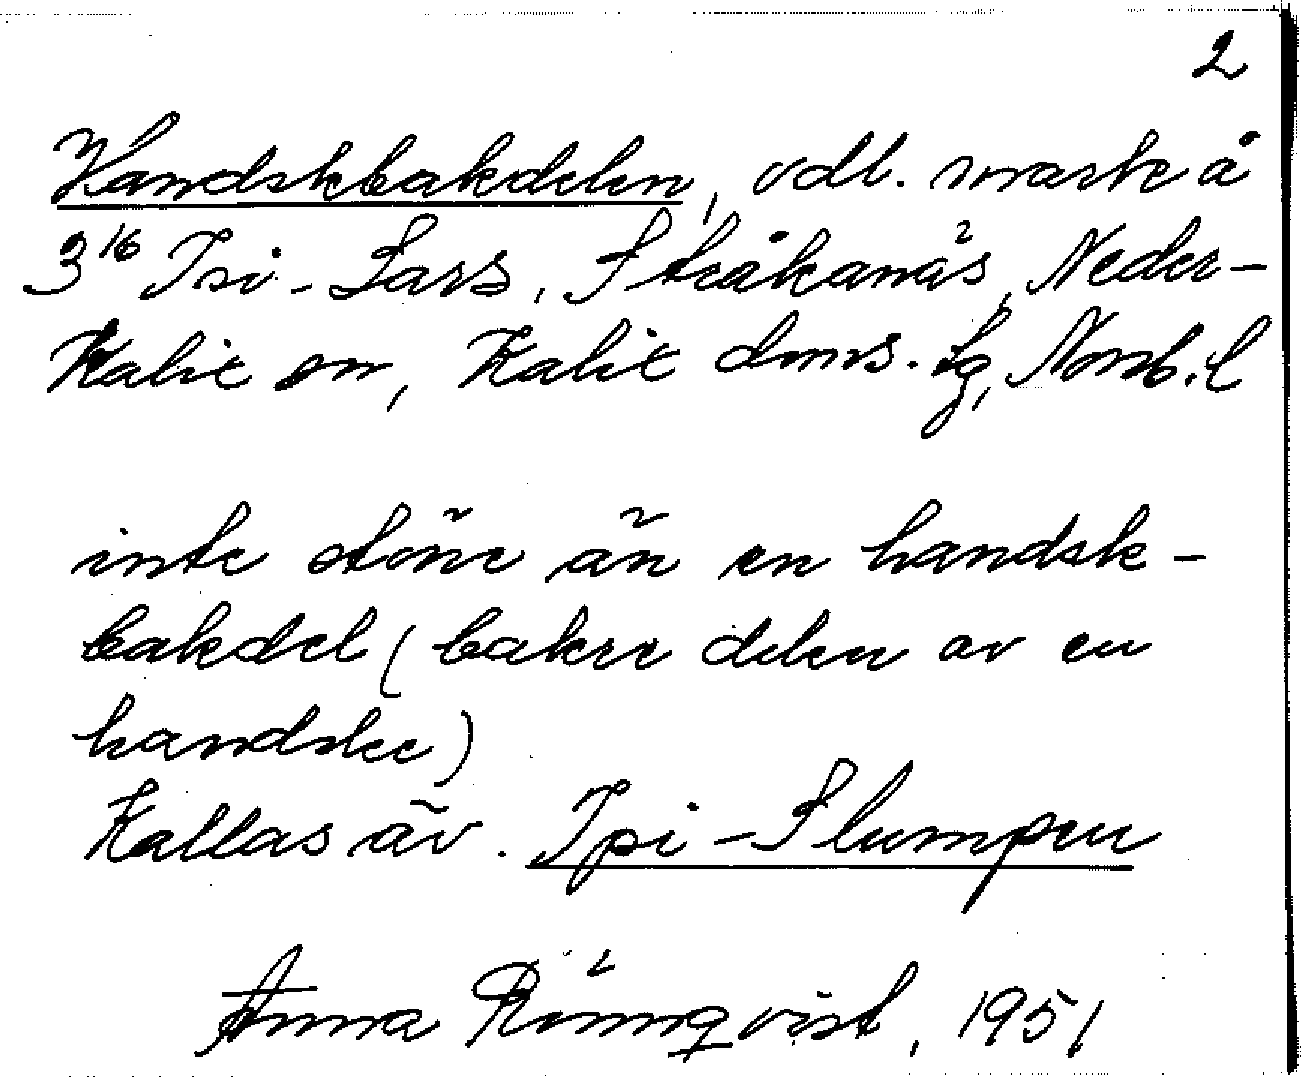 2
Handskbakdelen, odl. mark å
3¹⁶ Isi-Lars, Stråkanäs, Neder-
Kalix sn, Kalix doms. lg, Norrb. l
inte större än en handsk-
bakdel (bakre delen av en
handske)
Kallas äv. Ipi-Slumpen
Anna Rönnqvist, 1951